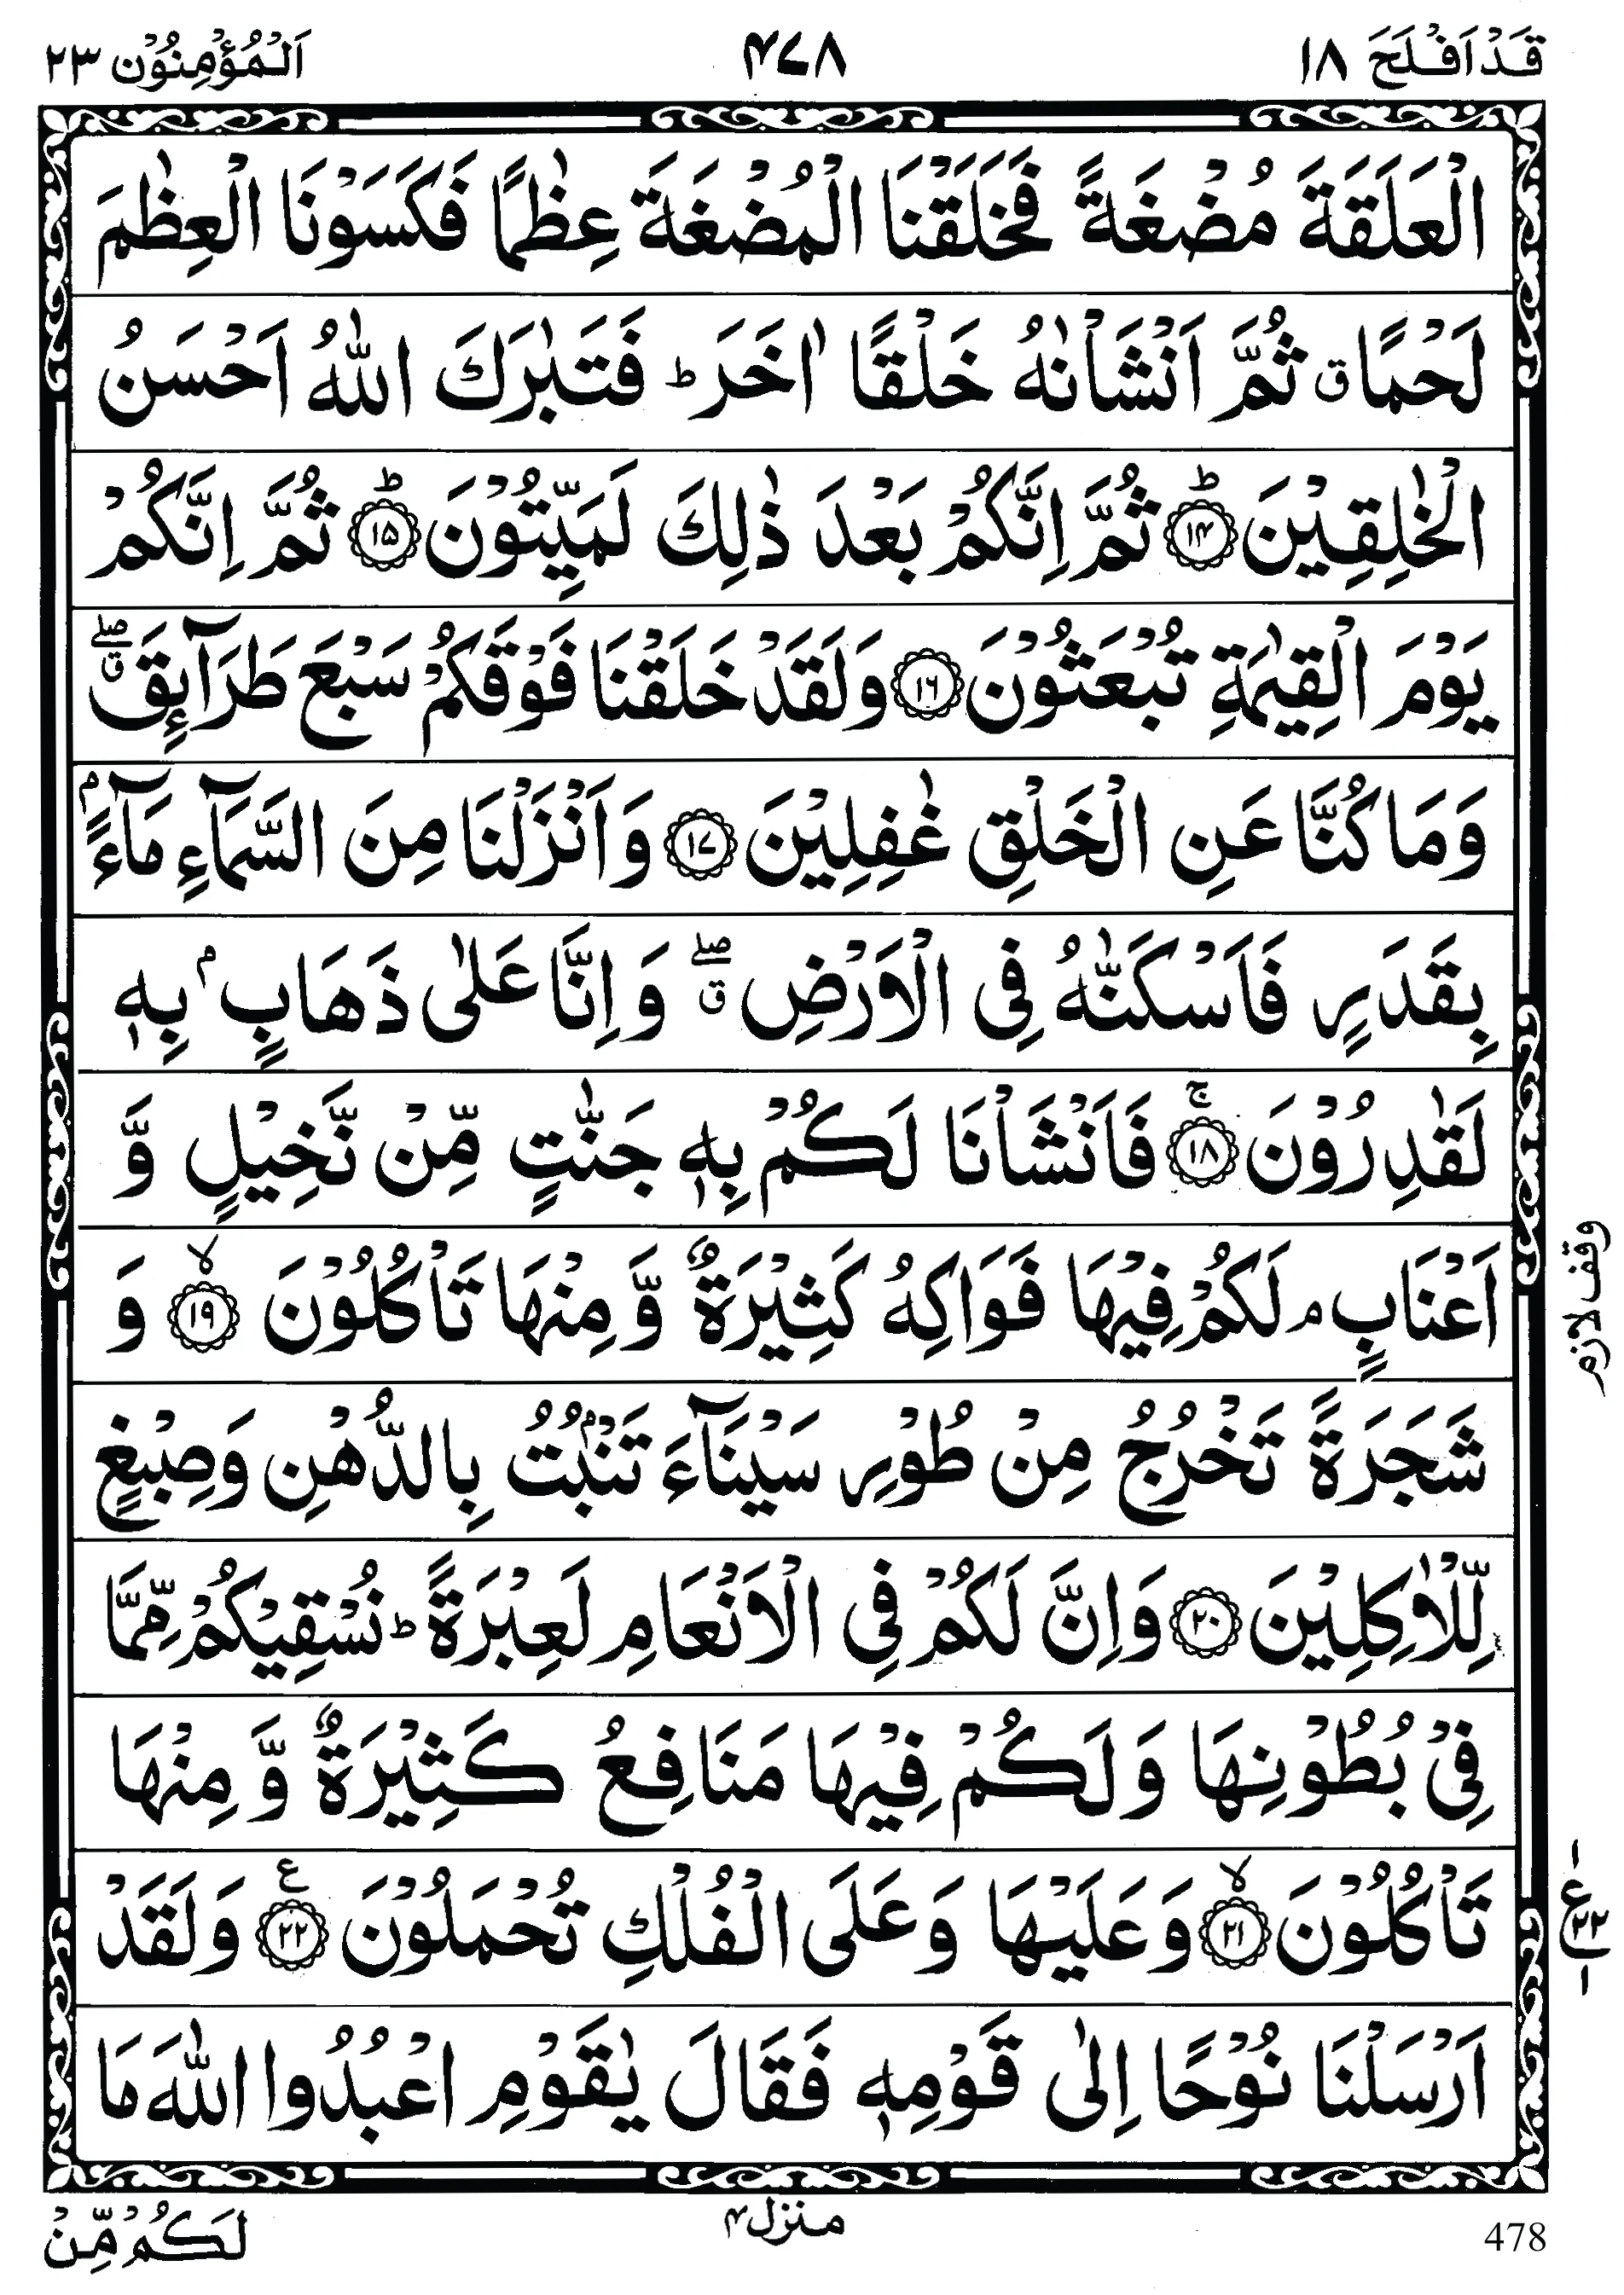 قَدْ اَفْلَحَ ١٨
۴۷۸
اَلْمُؤْمِنُوْن ٢٣
الْعَلَقَةَ مُضْغَةً فَخَلَقْنَا الْمُضْغَةَ عِظٰمًا فَكَسَوْنَا الْعِظٰمَ
لَحْمًا ۗ ثُمَّ اَنْشَاْنٰهُ خَلْقًا اٰخَرَ ؕ فَتَبٰرَكَ اللّٰهُ اَحْسَنُ
الْخٰلِقِيْنَ ؕ ﴿۱۴﴾ ثُمَّ اِنَّكُمْ بَعْدَ ذٰلِكَ لَمَيِّتُوْنَ ؕ ﴿۱۵﴾ ثُمَّ اِنَّكُمْ
يَوْمَ الْقِيٰمَةِ تُبْعَثُوْنَ ﴿۱۶﴾ وَلَقَدْ خَلَقْنَا فَوْقَكُمْ سَبْعَ طَرَآئِقَ ۖ ق
وَمَا كُنَّا عَنِ الْخَلْقِ غٰفِلِيْنَ ﴿۱۷﴾ وَاَنْزَلْنَا مِنَ السَّمَآءِ مَآءًۢ
بِقَدَرٍ فَاَسْكَنّٰهُ فِى الْاَرْضِ ۖ ق وَاِنَّا عَلٰى ذَهَابٍۭ بِهٖ
لَقٰدِرُوْنَ ۚ ﴿۱۸﴾ فَاَنْشَاْنَا لَكُمْ بِهٖ جَنّٰتٍ مِّنْ نَّخِيْلٍ وَّ
اَعْنَابٍ ۘ لَكُمْ فِيْهَا فَوَاكِهُ كَثِيْرَةٌ وَّمِنْهَا تَاْكُلُوْنَ ۙ ﴿۱۹﴾ وَ
وقف لازم
شَجَرَةً تَخْرُجُ مِنْ طُوْرِ سَيْنَآءَ تَنْۢبُتُ بِالدُّهْنِ وَصِبْغٍ
لِّلْاٰكِلِيْنَ ﴿۲۰﴾ وَاِنَّ لَكُمْ فِى الْاَنْعَامِ لَعِبْرَةً ؕ نُسْقِيْكُمْ مِّمَّا
فِىْ بُطُوْنِهَا وَلَكُمْ فِيْهَا مَنَافِعُ كَثِيْرَةٌ وَّمِنْهَا
تَاْكُلُوْنَ ۙ ﴿۲۱﴾ وَعَلَيْهَا وَعَلَى الْفُلْكِ تُحْمَلُوْنَ ع ﴿۲۲﴾ وَلَقَدْ
اَرْسَلْنَا نُوْحًا اِلٰى قَوْمِهٖ فَقَالَ يٰقَوْمِ اعْبُدُوا اللّٰهَ مَا
478
منزل ۴
لَكُمْ مِّنْ